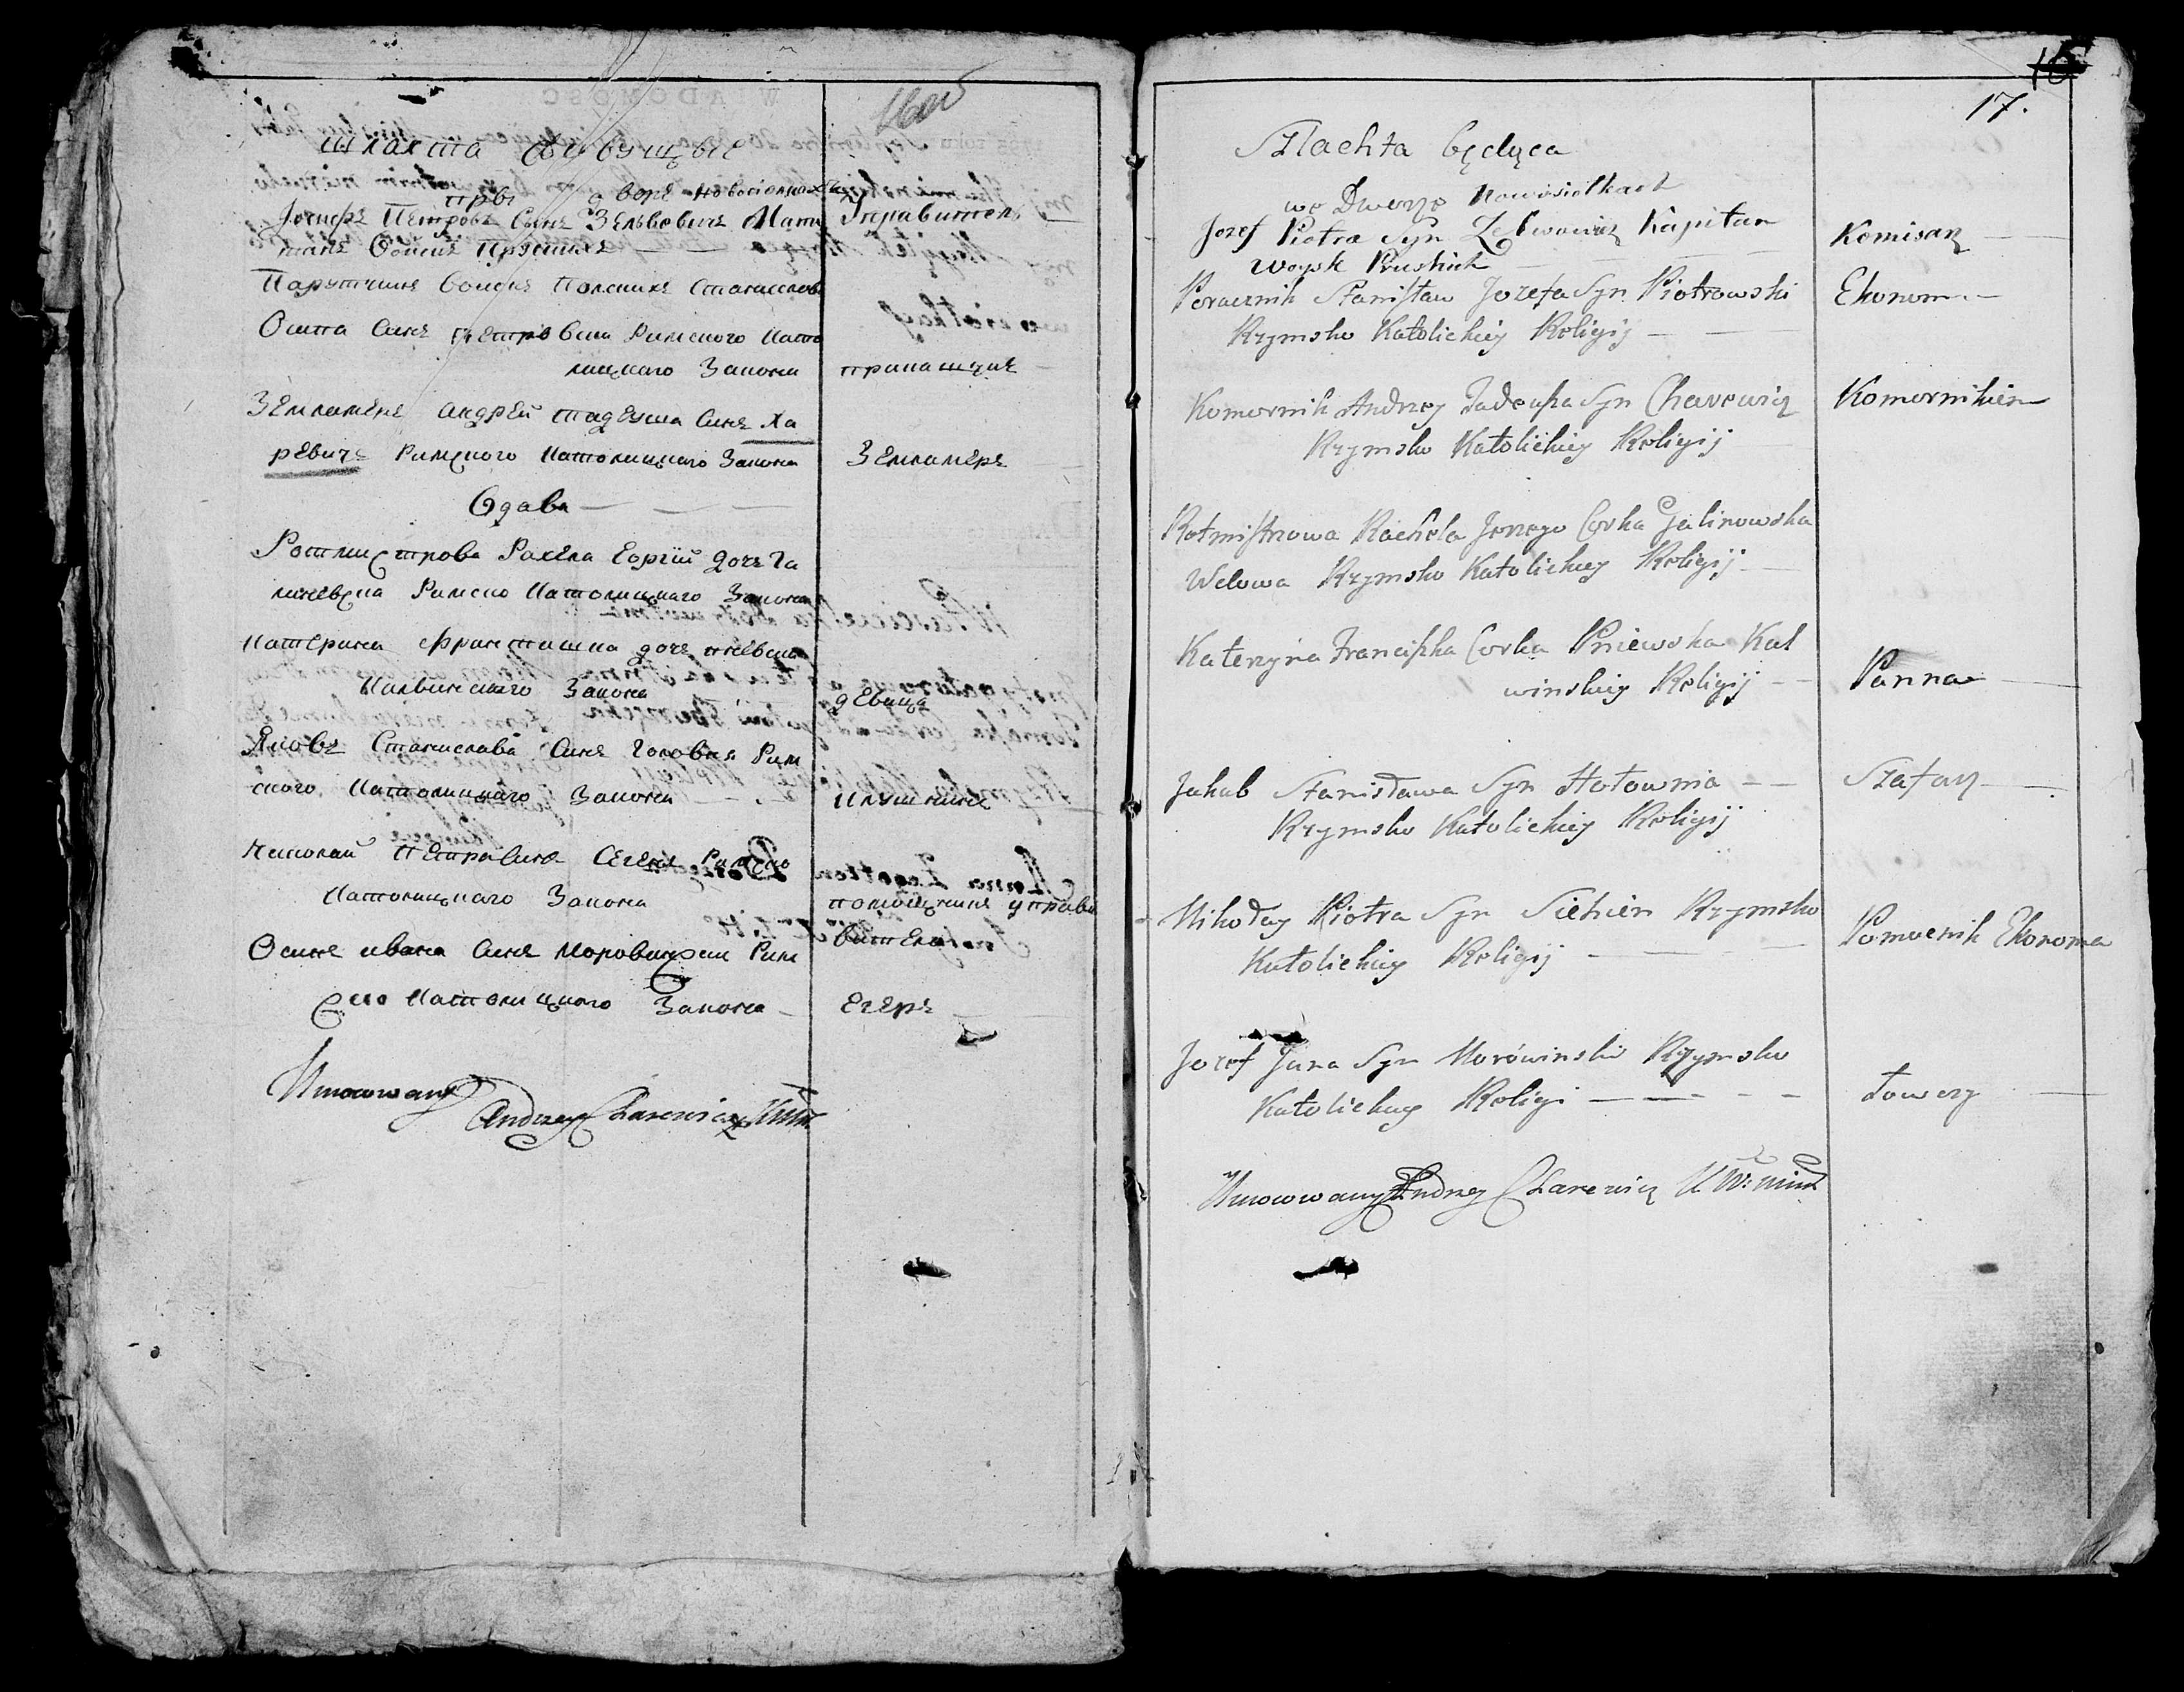 16об
шляхта живущые
при дворе Новоселках
Іосифъ Петровъ Сынъ Зельвовичъ Капи
танъ Войскъ Прускихъ — — Управитель
Паручникъ войскъ Полскихъ Станиславъ
Осипа Синъ Петровски Римского Като
лицкаго Закона прикащикъ
Землемеръ Андрей Тадеуша Синъ Ха
ревичъ Римского Католицкаго Закона Землемеръ
Вдава —
Ротмистрова Рахела Еоргiй дочь Га
линевска Римско Католицкаго Закона
Катерина Франтишка дочь пневска
Калвинскаго Закона девица
Яковъ Станислава Синъ Головня Рим
ского Католицкаго Закона — Ключникъ
Николай Петра Синъ Сегень Римско
Католицкаго Закона помощникъ управи
вителя
Осипъ ивана Синъ Моровински Рим
ско Католицкаго Закона — Егеръ
Umocowany Andrzey Charewicz
16
17.
Szlachta będąca
we Dworze Nowosiołkach
Jozef Piotra Syn Zelwowicz Kapitan Komisarz
Woysk Pruskich
Porucznik Stanisław Jozefa Syn Piotrowski Ekonom
Rzymsko Katolickiey Religij —
Komornik Andrzey Tadeusza Syn Charewicz Komornikiem
Rzymsko Katolickiey Religij
Rotmistrzowa Rachela Jerzego Corka Galinowska
Wdowa Rzymsko Katolickiey Religij —
Katerzyna Franciszka Corka Pniewska Kal
winskiey Religij — Panna
Jakub Stanisława Syn Hołownia — — Szafarz
Rzymsko Katolickiey Religij
Mikołay Piotra Syn Siehień Rzymsko
Katolickiey Religij — Pomocnik Ekonoma
Jozef Jana Syn Morówinski Rzymsko
Katolickiey Religi — — — Łowczy
Umocowany Andrzey Charewicz